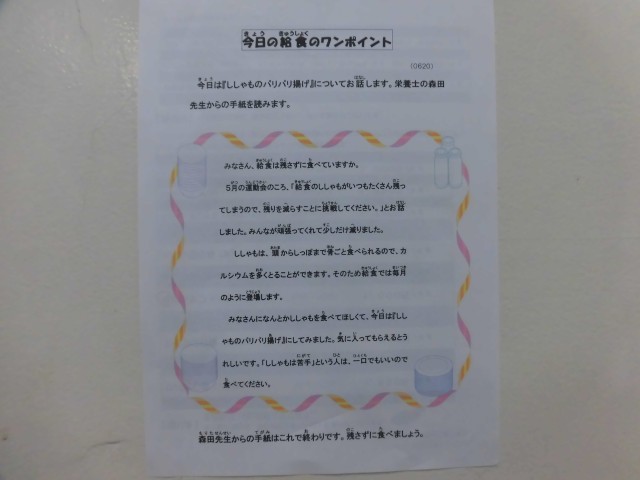 今日の給食のワンポイント
(0620)
今日は『ししゃものパリパリ揚げ』についてお話します。栄養士の森田
先生からの手紙を読みます。
みなさん、給食は残さずに食べていますか。
5月の運動会のころ、「給食のししゃもがいつもたくさん残っ
てしまうので、残りを減らすことに挑戦してください。」とお話
しました。みんなが頑張ってくれて少しだけ減りました。
ししゃもは、頭からしっぽまで骨ごと食べられるので、カ
ルシウムを多くとることができます。そのため給食では毎月
のように登場します。
みなさんになんとかししゃもを食べてほしくて、今日は『しし
ゃものパリパリ揚げ』にしてみました。気に入ってもらえるとう
れしいです。「ししゃもは苦手」という人は、一口でもいいので
食べてください。
森田先生からの手紙はこれで終わりです。残さずに食べましょう。